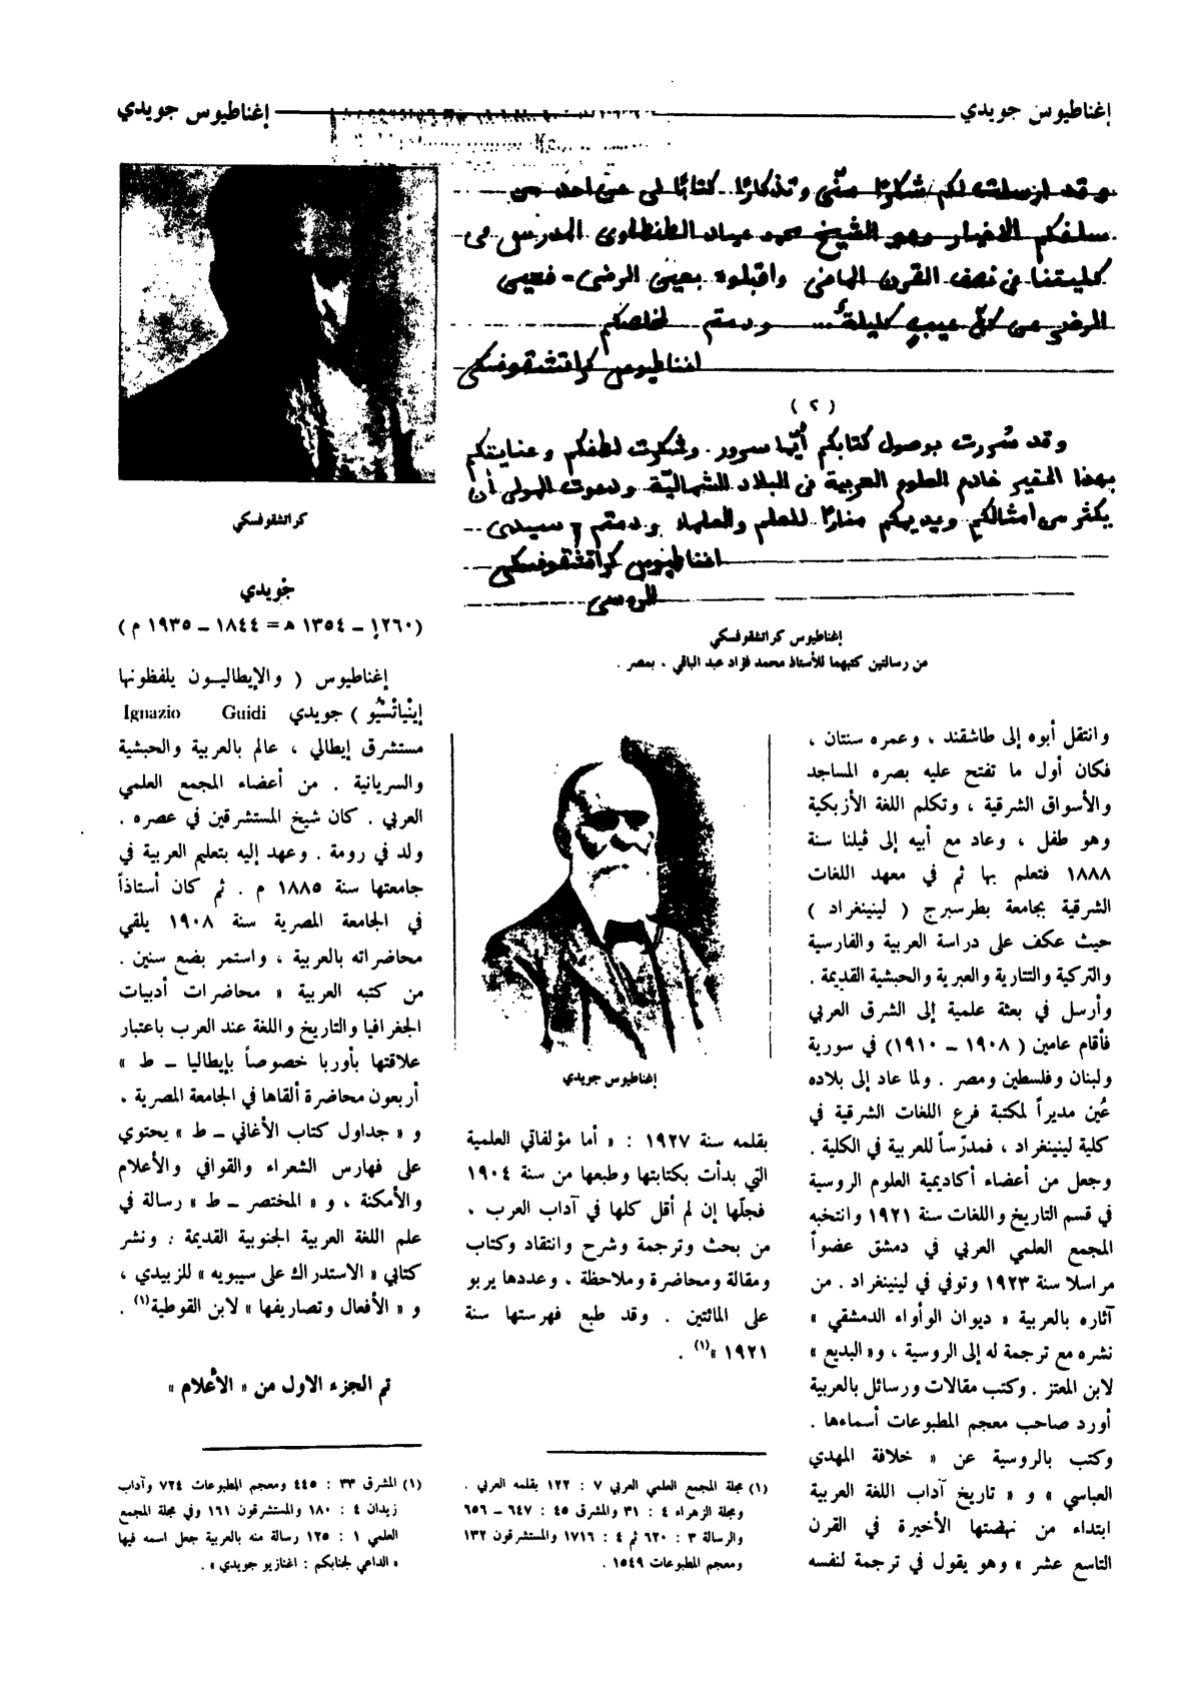 إغناطيوس جويدي
إغناطيوس جويدي
وقد ارسلت لكم شكرًا منّي وتذكارًا كتابًا لي عن احد من
سلفكم الاخيار وهو الشيخ محمد عياد الطنطاوى المدرس فى
كليتنا فى نصف القرن الماضى واقبلوه بعين الرضى - فعين
الرضى عن كلّ عيبٍ كليلةٌ ... ودمتم لمخلصكم
اغناطيوس كراتشقوفسكى
(٢)
وقد سُررت بوصول كتابكم أيّما سرور. وشكرت لطفكم وعنايتكم
بهذا الحقير خادم العلوم العربية فى البلاد الشماليّة ودعوت المولى أن
يكثر من امثالكم ويديمكم منارًا للعلم والعلماء ودمتم سيدى
اغناطيوس كراتشقوفسكى
الروسى
إغناطيوس كراتشقوفسكي
من رسالتين كتبهما للأستاذ محمد فؤاد عبد الباقي ، بمصر .
وانتقل أبوه إلى طاشقند ، وعمره سنتان ،
فكان أول ما تفتح عليه بصره المساجد
والأسواق الشرقية ، وتكلم اللغة الأزبكية
وهو طفل ، وعاد مع أبيه إلى ڤيلنا سنة
١٨٨٨ فتعلم بها ثم في معهد اللغات
الشرقية بجامعة بطرسبرج ( لينينغراد )
حيث عكف على دراسة العربية والفارسية
والتركية والتتارية والعبرية والحبشية القديمة .
وأرسل في بعثة علمية إلى الشرق العربي
فأقام عامين ( ١٩٠٨ – ١٩١٠) في سورية
ولبنان وفلسطين ومصر . ولما عاد إلى بلاده
عُين مديراً لمكتبة فرع اللغات الشرقية في
كلية لينينغراد ، فمدرّساً للعربية في الكلية .
وجعل من أعضاء أكاديمية العلوم الروسية
في قسم التاريخ واللغات سنة ١٩٢١ وانتخبه
المجمع العلمي العربي في دمشق عضواً
مراسلا سنة ١٩٢٣ وتوفي في لينينغراد . من
آثاره بالعربية « ديوان الوأواء الدمشقي »
نشره مع ترجمة له إلى الروسية ، و« البديع »
لابن المعتز . وكتب مقالات ورسائل بالعربية
أورد صاحب معجم المطبوعات أسماءها .
وكتب بالروسية عن « خلافة المهدي
العباسي » و « تاريخ آداب اللغة العربية
ابتداء من نهضتها الأخيرة في القرن
التاسع عشر » وهو يقول في ترجمة لنفسه
إغناطيوس جويدي
بقلمه سنة ١٩٢٧ : « أما مؤلفاتي العلمية
التي بدأت بكتابتها وطبعها من سنة ١٩٠٤
فجلّها إن لم أقل كلها في آداب العرب ،
من بحث وترجمة وشرح وانتقاد وكتاب
ومقالة ومحاضرة وملاحظة ، وعددها يربو
على المائتين . وقد طبع فهرستها سنة
١٩٢١ »(١) .
(١) مجلة المجمع العلمي العربي ٧ : ١٢٢ بقلمه العربي .
ومجلة الزهراء ٤ : ٣١ والمشرق ٤٥ : ٦٤٧ – ٦٥٦
والرسالة ٣ : ٦٢٠ ثم ٤ : ١٧١٦ والمستشرقون ١٣٢
ومعجم المطبوعات ١٥٤٩ .
كراتشقوفسكي
جُويدي
(١٢٦٠ – ١٣٥٤ ه = ١٨٤٤ – ١٩٣٥ م )
إغناطيوس ( والإيطاليون يلفظونها
إينْياتْسْيُو ) جويدي Ignazio Guidi
مستشرق إيطالي ، عالم بالعربية والحبشية
والسريانية . من أعضاء المجمع العلمي
العربي . كان شيخ المستشرقين في عصره .
ولد في رومة . وعهد إليه بتعليم العربية في
جامعتها سنة ١٨٨٥ م . ثم كان أستاذاً
في الجامعة المصرية سنة ١٩٠٨ يلقي
محاضراته بالعربية ، واستمر بضع سنين .
من كتبه العربية « محاضرات أدبيات
الجغرافيا والتاريخ واللغة عند العرب باعتبار
علاقتها بأوربا خصوصاً بإيطاليا – ط »
أربعون محاضرة ألقاها في الجامعة المصرية ،
و « جداول كتاب الأغاني – ط » يحتوي
على فهارس الشعراء والقوافي والأعلام
والأمكنة ، و « المختصر – ط » رسالة في
علم اللغة العربية الجنوبية القديمة . ونشر
كتابي « الاستدراك على سيبويه » للزبيدي ،
و « الأفعال وتصاريفها » لابن القوطية(١) .
تم الجزء الاول من « الأعلام »
(١) المشرق ٣٣ : ٤٤٥ ومعجم المطبوعات ٧٢٤ وآداب
زيدان ٤ : ١٨٠ والمستشرقون ١٦١ وفي مجلة المجمع
العلمي ١ : ١٢٥ رسالة منه بالعربية جعل اسمه فيها
« الداعي لجنابكم : اغنازيو جويدي » .